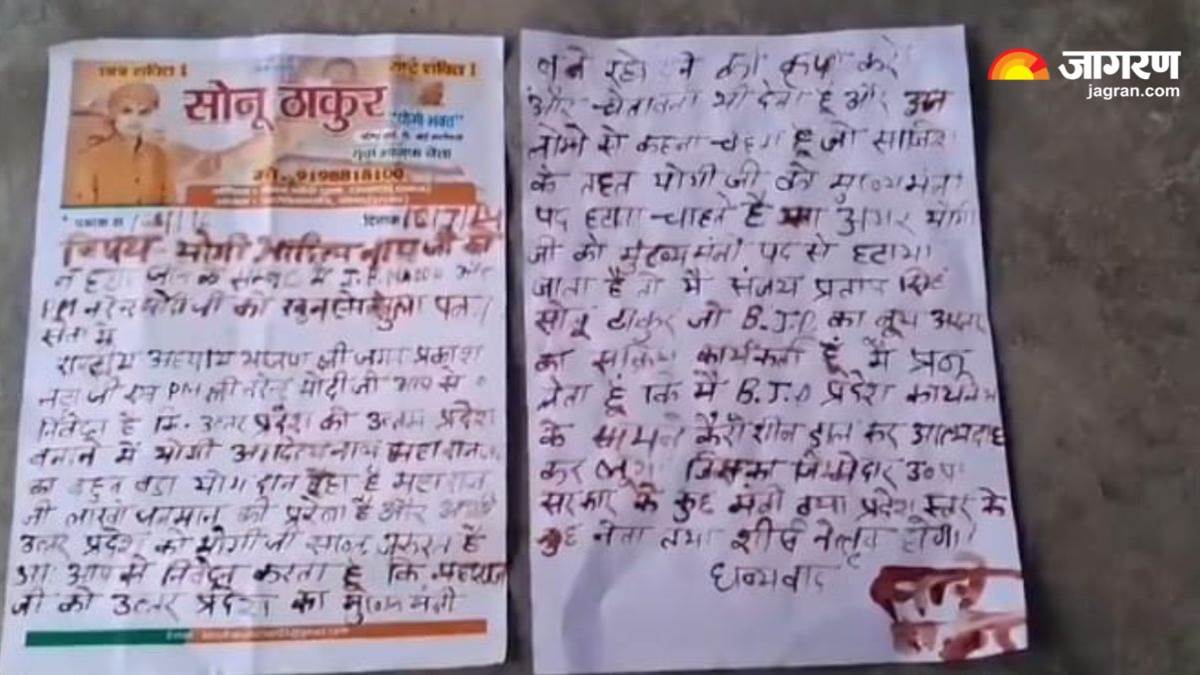 छात्र शक्ति
राष्ट्र शक्ति
सोनू ठाकुर
"योगी भक्त"
युवा भाजपा नेता
मो. 9198818100
दिनांक
विषय - योगी आदित्य नाथ जी को
न हटाए जाने के सम्बंध में J.P. NADDA और
PM नरेन्द्र मोदी जी को खुन से खुला पत्र
सेवा में
राष्ट्रीय अध्यक्ष भाजपा श्री जगत प्रकाश
नड्डा जी एवं PM श्री नरेन्द्र मोदी जी आप से
निवेदन है कि उत्तर प्रदेश को उत्तम प्रदेश
बनाने में योगी आदित्यनाथ महाराज जी
का बहुत बड़ा योगदान रहा है महाराज
जी लाखो जनमान की प्रेरणा है और
उत्तर प्रदेश को योगी जी जरूरत है
आप से निवेदन करता हूं कि महाराज
जी को उत्तर प्रदेश का मुख्य मंत्री
बने रहने की कृपा करे
और चेतावनी भी देता हूं और उन
लोगो से कहना चाहता हूं जो साजिश
के तहत योगी जी को मुख्यमंत्री
पद हटाना चाहते है अगर योगी
जी को मुख्यमंत्री पद से हटाया
जाता है तो मै संजय प्रताप सिंह
सोनू ठाकुर जो B.J.P का बूथ अध्यक्ष
का सक्रिय कार्यकर्ता हूं मै प्रण
लेता हूं कि मै B.J.P प्रदेश कार्यालय
के सामने कैरोशीन डाल कर आत्मदाह
कर लूंगा जिसका जिम्मेदार उ०प्र०
सरकार के कुछ मंत्री तथा प्रदेश स्तर के
कुछ नेता तथा शीर्ष नेतृत्व होगा।
धन्यवाद
जागरण
jagran.com